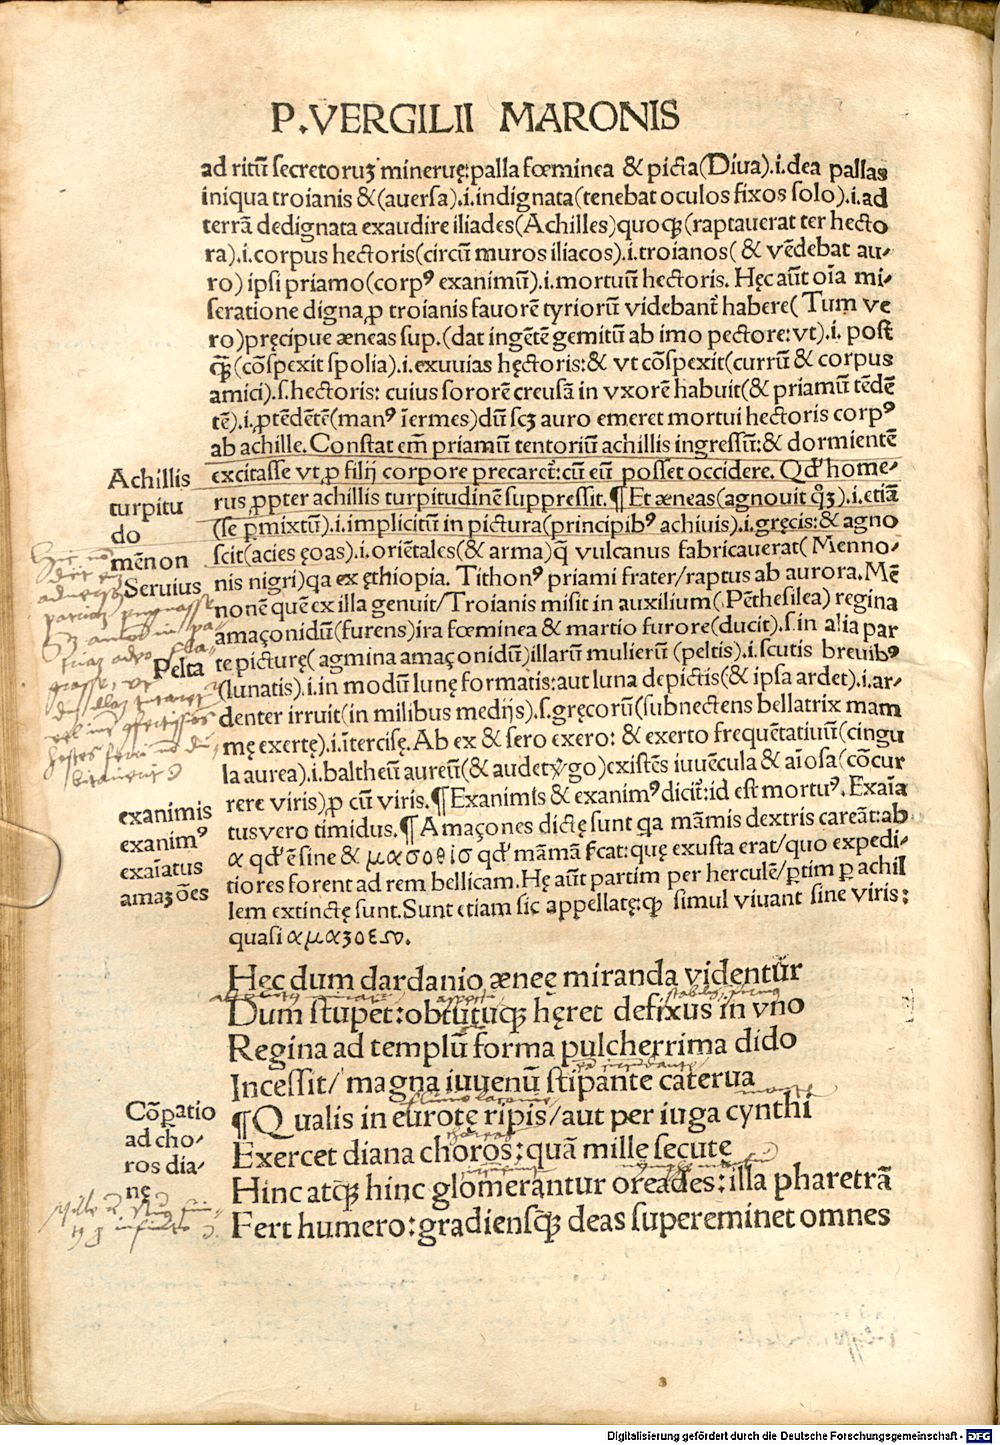 P.VERGILII MARONIS
ad ritū secretoruꝫ mineruę:palla fœminea & picta(Diua).i.dea pallas
iniqua troianis &(auersa).i.indignata(tenebat oculos fixos solo).i.ad
terrā dedignata exaudire iliades(Achilles)quoqꝫ(raptauerat ter hecto
ra).i.corpus hectoris(circū muros iliacos).i.troianos(& vēdebat au-
ro)ipsi priamo(corpꝰ exanimū).i.mortuū hectoris. Hęc aūt oīa mi-
seratione digna,ꝓ troianis fauorē tyriorū videbant̄ habere(Tum ve
ro)pręcipue æneas sup.(dat ingētē gemitū ab imo pectore:vt).i. post
qꝫ̄(cōspexit spolia).i.exuuias hęctoris:& vt cōspexit(currū & corpus
amici).s.hectoris: cuius sororē creusā in vxorē habuit(& priamū tēdē
tē).i.ꝓtēdētē(manꝰ īermes)dū scꝫ auro emeret mortui hectoris corpꝰ
ab achille. Constat em̄ priamū tentoriū achillis ingressū:& dormientē
Achillis
turpitu
do
excitasse vt ꝓ filij corpore precaret̄:cū eū posset occidere. Qd' home-
rus ꝓpter achillis turpitudinē suppressit.¶Et æneas(agnouit qꝫ̄).i.etiā
(se ꝑmixtū).i.implicitū in pictura(principibꝰ achiuis).i.gręcis:& agno
mēnon
Seruius
scit(acies ęoas).i.oriētales(& arma)q̄ vulcanus fabricauerat(Menno-
nis nigri)qa ex ęthiopia. Tithonꝰ priami frater/raptus ab aurora. Mē
nonē quē ex illa genuit/Troianis misit in auxilium(Pēthesilea)regina
amaçonidū(furens)ira fœminea & martio furore(ducit).s.in alia par
Pelta
te picturę(agmina amaçonidū)illarū mulierū (peltis).i.scutis breuibꝰ
(lunatis).i.in modū lunę formatis:aut luna depictis(& ipsa ardet).i.ar-
denter irruit(in milibus medijs).s.gręcorū(subnectens bellatrix mam
mę exertę).i.ītercisę. Ab ex & sero exero: & exerto frequētatiuū(cingu
la aurea).i.baltheū aureū(& audet v̾go)existēs iuuēcula & aīosa(cōcur
exanimis
exanimꝰ
exaīatus
amaꝫōes
rere viris)ꝓ cū viris.¶Exanimis & exanimꝰ dicit̄:id est mortuꝰ. Exaīa
tus vero timidus.¶Amaçones dictę sunt qa māmis dextris careāt:ab
α qd' ē sine & μασοθισ qd' māmā s̄cat:quę exusta erat/quo expedi-
tiores forent ad rem bellicam.Hę aūt partim per herculē/ꝑtim ꝑ achil
lem extinctę sunt.Sunt etiam sic appellatę:qꝫ simul viuant sine viris:
quasi αμαζοεσν.
Hęc dum dardanio æneę miranda videntur
Dum stupet:obtutuqꝫ hęret defixus in vno
Regina ad templū forma pulcherrima dido
Incessit/ magna iuuenū stipante caterua
Cōꝑatio
ad cho-
ros dia-
nę
¶Qualis in eurotę ripis/aut per iuga cynthi
Exercet diana choros:quā mille secutę
Hinc atqꝫ hinc glomerantur oreades:illa pharetrā
Fert humero:gradiensqꝫ deas supereminet omnes
Digitalisierung gefördert durch die Deutsche Forschungsgemeinschaft - DFG